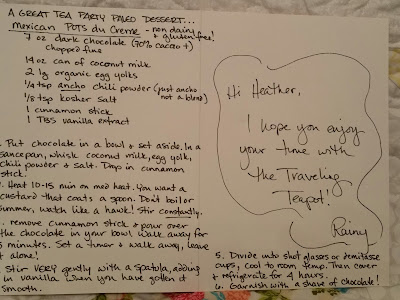 A GREAT TEA PARTY PALEO DESSERT...
Mexican POTS du Creme - non dairy
+ gluten free!
7 oz dark chocolate (70% cacao+)
chopped fine
14 oz can of coconut milk
2 lg organic egg yolks
1/4 tsp ancho chili powder (just ancho
not a blend)
1/8 tsp kosher salt
1 cinnamon stick
1 TBS vanilla extract
. Put chocolate in a bowl & set aside. In a
sancepan, whisk coconut milk, egg yolk,
chili powder & salt. Drop in cinnamon
stick.
. Heat 10-15 min on med heat. You want a
custard that coats a spoon. Don't boil or
summer, watch like a hawk! Stir constantly.
. remove cinnamon stick & pour over
the chocolate in your bowl. walk away for
5 minutes. Set a timer & walk away, leave
it alone!
. Stir VERY gently with a spatula, adding
in vanilla when you have gotten it
smooth!
Hi Heather,
I hope you enjoy
your time with
the Traveling
Teapot!
Rainy
5. Divide into shot glasses or demitasse
cups, cool to room temp. Then cover
+ refrigerate for 4 hours.
6. Garnish with a shake of chocolate!